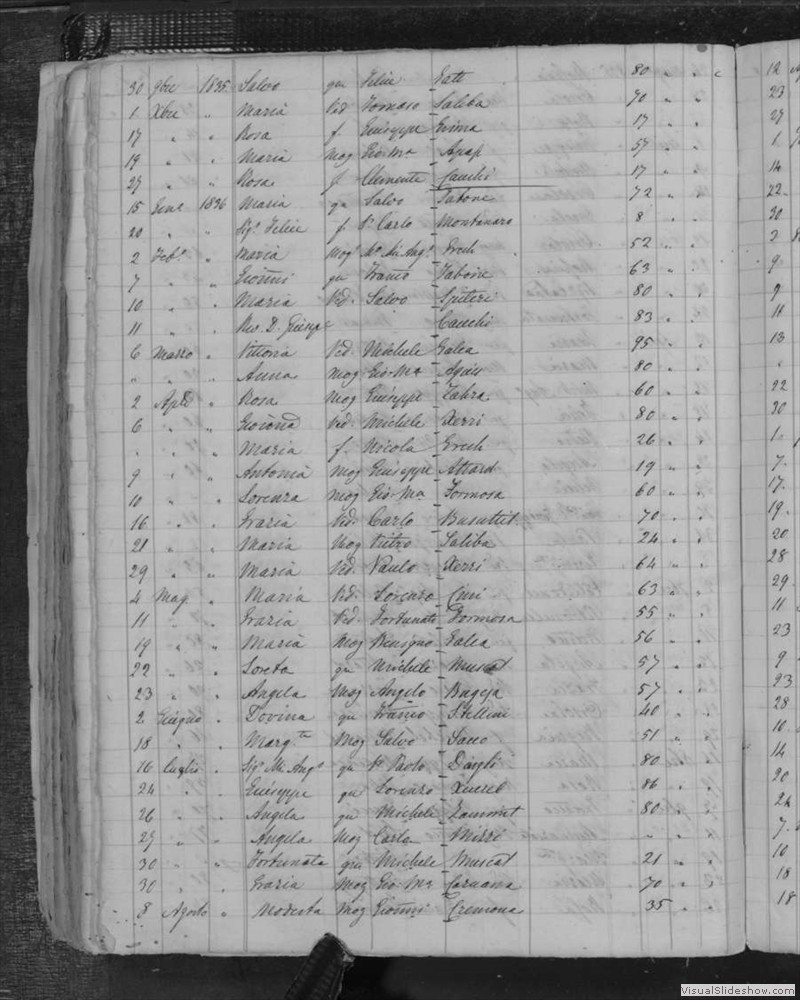 30 9bre 1835 Salvo qu Felice Gatt 80 " " c
1 Xbre " Maria Ved Tomaso Saliba 70 " "
17 " " Rosa f. Giuseppe Grima 17 " "
19 " " Maria Mog Gio Ma Apap 57 " "
27 " " Rosa f Clemente Cauchi 17 " "
15 Gen. 1836 Maria qu Salvo 72 " "
20 " Sigr Felice f. Sr Carlo Montanaro 8 "
2 Feb. " Maria Mog Ml. Ang. Grech 52 " "
7 " Gionni qu Franco Tabone 63 " "
10 " Maria Ved. Salvo Spiteri 80 " "
11 " Rev. D. Giuseppe Cauchi 83 " "
6 Marzo " Vittoria Ved. Michele Galea 95 " "
" " " Anna Mog Gio Ma Agius 80 " "
2 Aple " Rosa Mog Giuseppe Zahra 60 " "
6 " Ved. Michele Xerri 80 " "
" " Maria f. Nicola Grech 26 " "
9 " " Antonia Mog Giuseppe Attard 19 " "
10 " Lorenza Mog Gio Ma Formosa 60 " "
16 " " Grazia Ved. Carlo Busuttil 70 " "
21 " " Maria Mog Pietro Saliba 24 " "
29 " " Maria Ved. Paulo Xerri 64 " "
4 Mag. " Maria Ved. Lorenzo Cini 63 " "
11 " Grazia Ved. Fortunato Formosa 55 " "
19 " Maria Mog Benigno Galea 56 " "
22 " " Loreta qu Michele Muscat 57 " "
23 " " Angela Mog Angelo Bugeja 57 " "
2 Giugno " Dovina qu Franco Stellini 40 " "
18 " Margta Mog Salvo 51 " "
16 Luglio " Sigr Ml. Ango qu Sr Paolo 80 " "
24 " Giuseppe qu Lorenzo Xuereb 86 " "
26 " Angela qu Michele Zammit 80 " "
27 " " Angela Mog Carlo Mizzi " "
30 " " Fortunata qu Michele Muscat 21 " "
30 " Grazia Mog Gio Ma Caruana 70 " "
8 Agosto " Modesta Mog Gionni Cremona 35 " "
12
23
27
1
14
22
30
3
9
9
11
13
22
30
1
7
17
19
20
28
29
11
23
9
23
28
10
14
20
24
7
10
18
18
VisualSlideshow.com